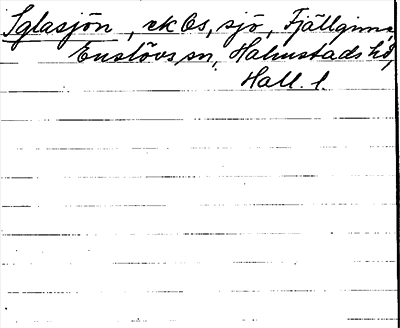 Iglasjön, ek bs, sjö, Fjällginna,
Enslövs sn, Halmstads hd,
Hall. l.